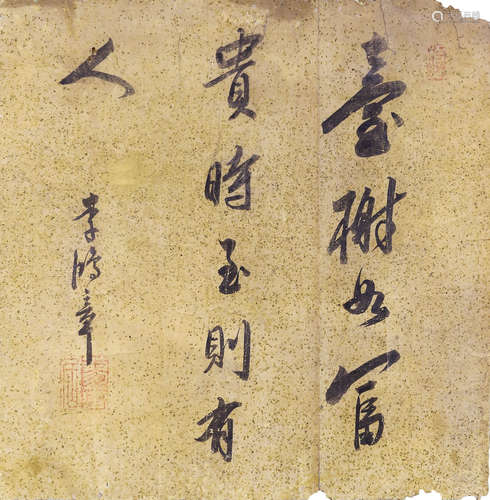 臺榭如富
貴時至則有
人
李鴻章